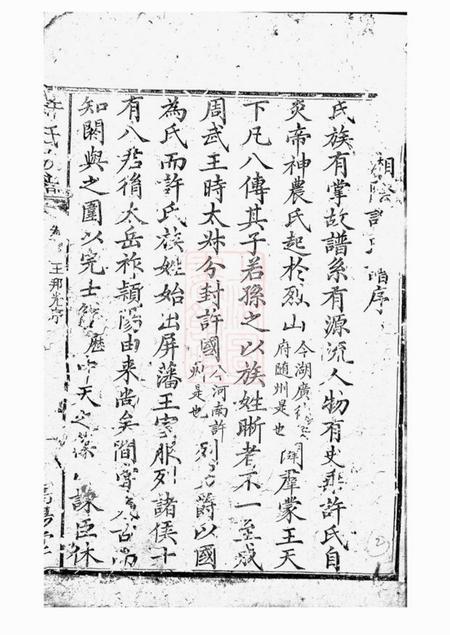 湘陰許氏譜序
氏族有掌故譜系有源流人物有史乘許氏自
炎帝神農氏起於烈山今湖廣府隨州是也開羣蒙王天
下凡八傳其子若孫之以族姓晰者不一至成
周武王時太叔分封許國今河南許州是也列爵以國
為氏而許氏族姓始出屏藩王室服列諸侯十
有八君後太岳祚潁陽由來尚矣間嘗
知閼與之圍以完士歷天之諫臣休
許氏
王邦光序